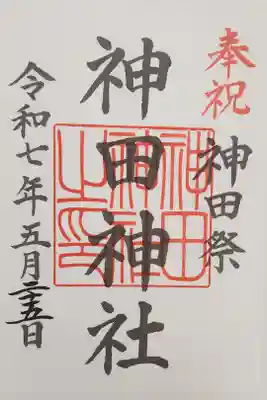 奉祝
神田祭
神田神社
神田
神社
之印
令和七年五月二五日